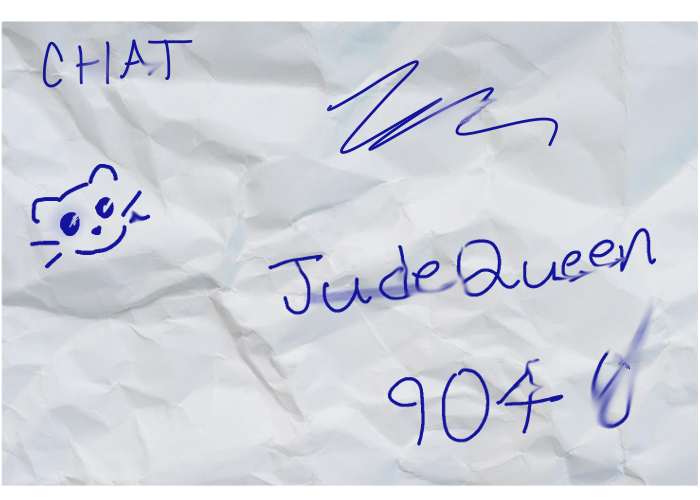 CHAT
JudeQueen
904